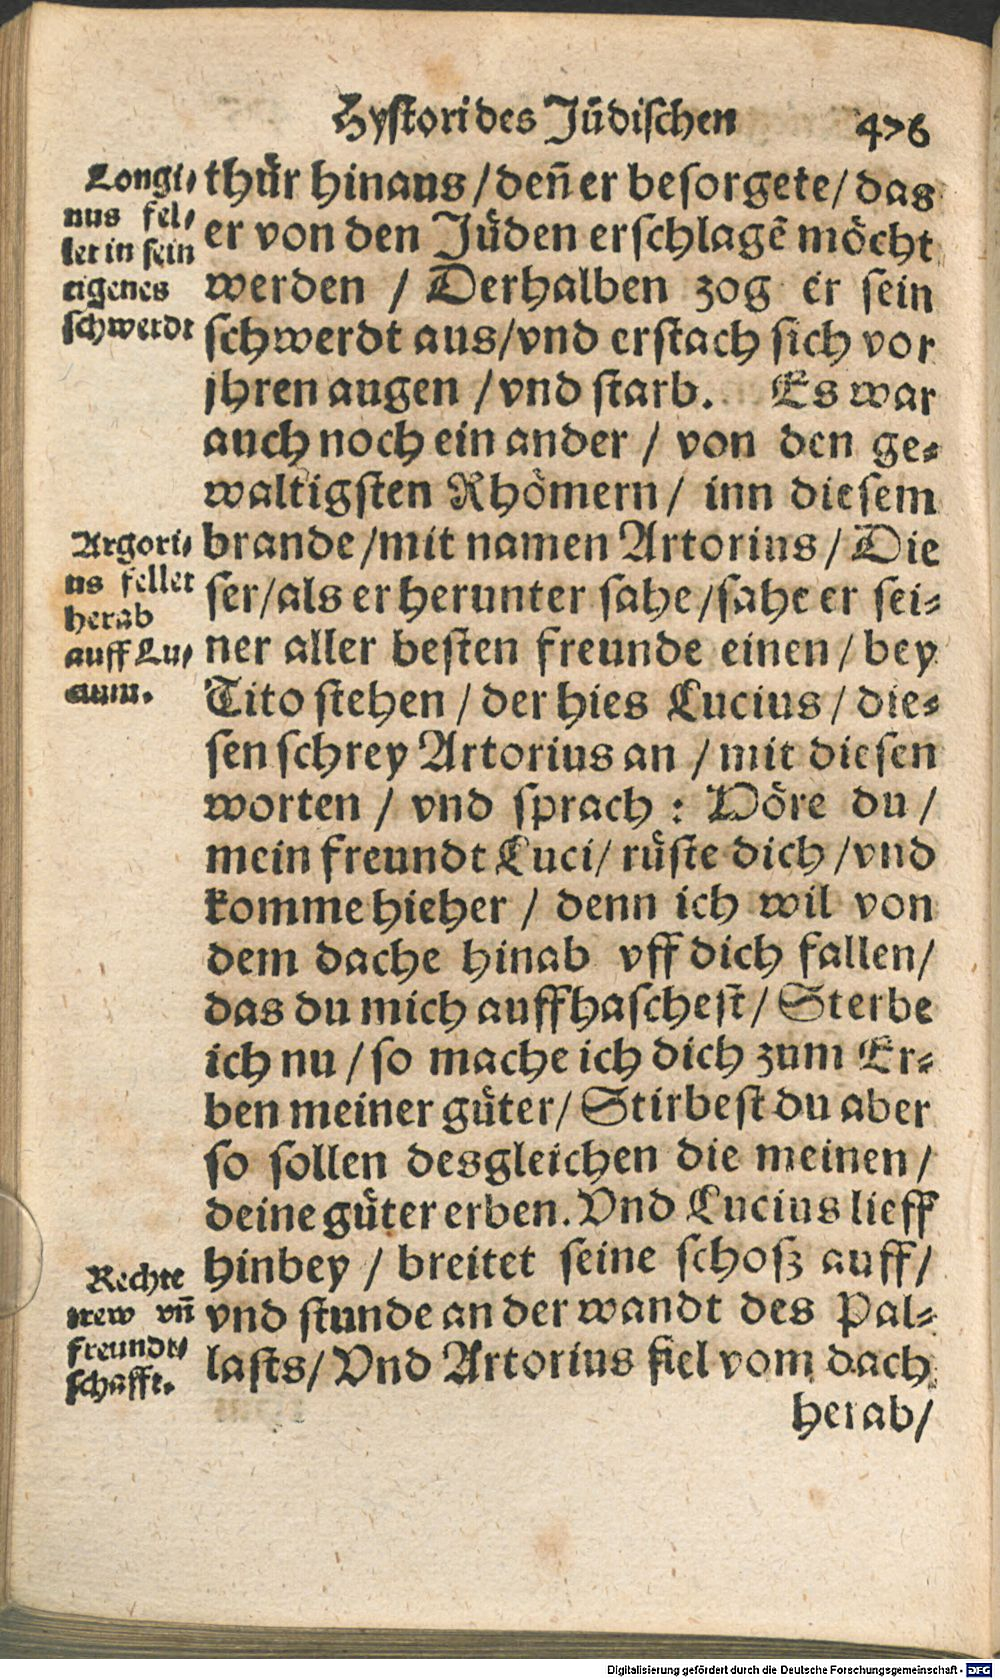 Hystori des Jüdischen
476
Longi/
nus fel/
let in sein
eigenes
schwerdt
thür hinaus / deñ er besorgete / das
er von den Jüden erschlagẽ möcht
werden / Derhalben zog er sein
schwerdt aus / vnd erstach sich vor
jhren augen / vnd starb. Es war
auch noch ein ander / von den ge-
waltigsten Rhömern / inn diesem
Argori/
us fellet
herab
auff Lu/
cium.
brande / mit namen Artorius / Die
ser / als er herunter sahe / sahe er sei-
ner aller besten freunde einen / bey
Tito stehen / der hies Lucius / die-
sen schrey Artorius an / mit diesen
worten / vnd sprach : Höre du /
mein freundt Luci / rüste dich / vnd
komme hieher / denn ich wil von
dem dache hinab vff dich fallen /
das du mich auffhaschest / Sterbe
ich nu / so mache ich dich zum Er-
ben meiner güter / Stirbest du aber
so sollen desgleichen die meinen /
deine güter erben. Vnd Lucius lieff
Rechte
trew vñ
freundt/
schafft.
hinbey / breitet seine schosz auff /
vnd stunde an der wandt des Pal-
lasts / Vnd Artorius fiel vom dach
herab /
Digitalisierung gefördert durch die Deutsche Forschungsgemeinschaft - DFG